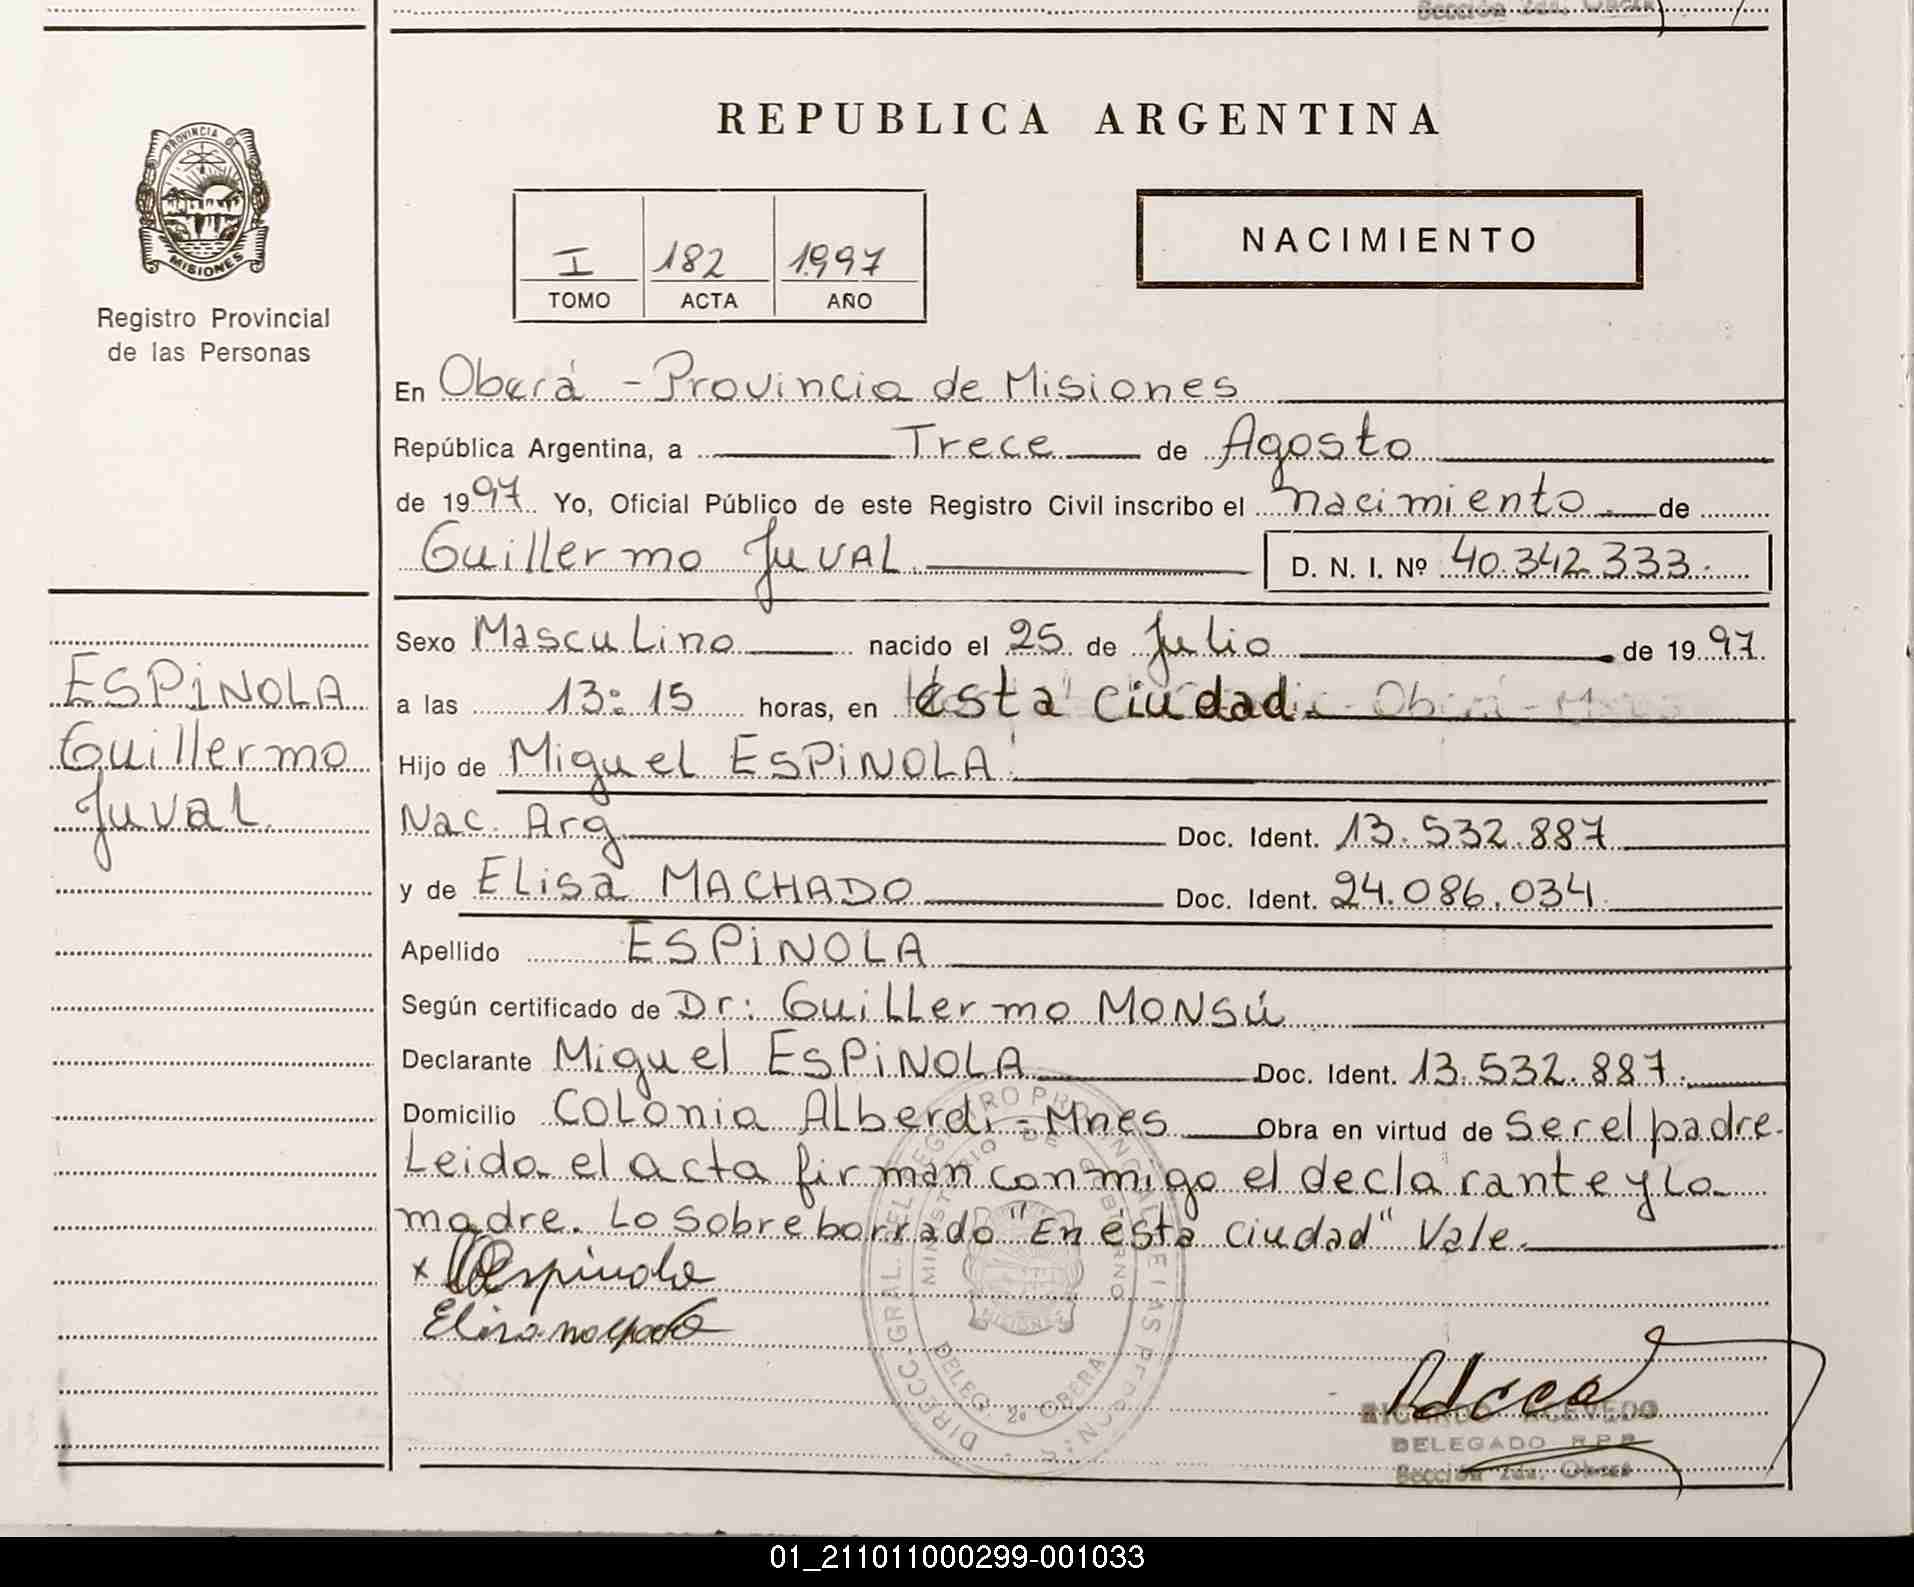 Sección 2da. Oberá
REPUBLICA ARGENTINA
PROVINCIA DE
MISIONES
Registro Provincial
de las Personas
I 182 1997
TOMO ACTA AÑO
NACIMIENTO
En Oberá - Provincia de Misiones
República Argentina, a Trece de Agosto
de 1997. Yo, Oficial Público de este Registro Civil inscribo el nacimiento. de
Guillermo JuVAL D. N. I. Nº 40.342.333.
Sexo Masculino nacido el 25 de Julio de 1997.
a las 13:15 horas, en ésta ciudad.
Hijo de Miguel ESPiNOLA
Nac. Arg Doc. Ident. 13.532.887
y de Elisa MACHADO Doc. Ident. 24.086.034
Apellido ESPiNOLA
Según certificado de Dr: Guillermo MONSÚ
Declarante Miguel ESPiNOLA Doc. Ident. 13.532.887.
Domicilio Colonia Alberdi - Mnes Obra en virtud de Ser el padre.
Leida el acta firman conmigo el declarante y la
madre. Lo sobreborrado "En ésta ciudad" Vale.
ESPiNOLA
Guillermo
Juval
x Espinola
Elisa machado
DIRECC. GRAL. DEL REGISTRO PROVINCIAL DE LAS PERSONAS
MINISTERIO DE GOBIERNO
MISIONES
DELEG. 2º OBERA
RICARDO ACEVEDO
DELEGADO R.P.P.
Sección 2da. Oberá
01_211011000299-001033